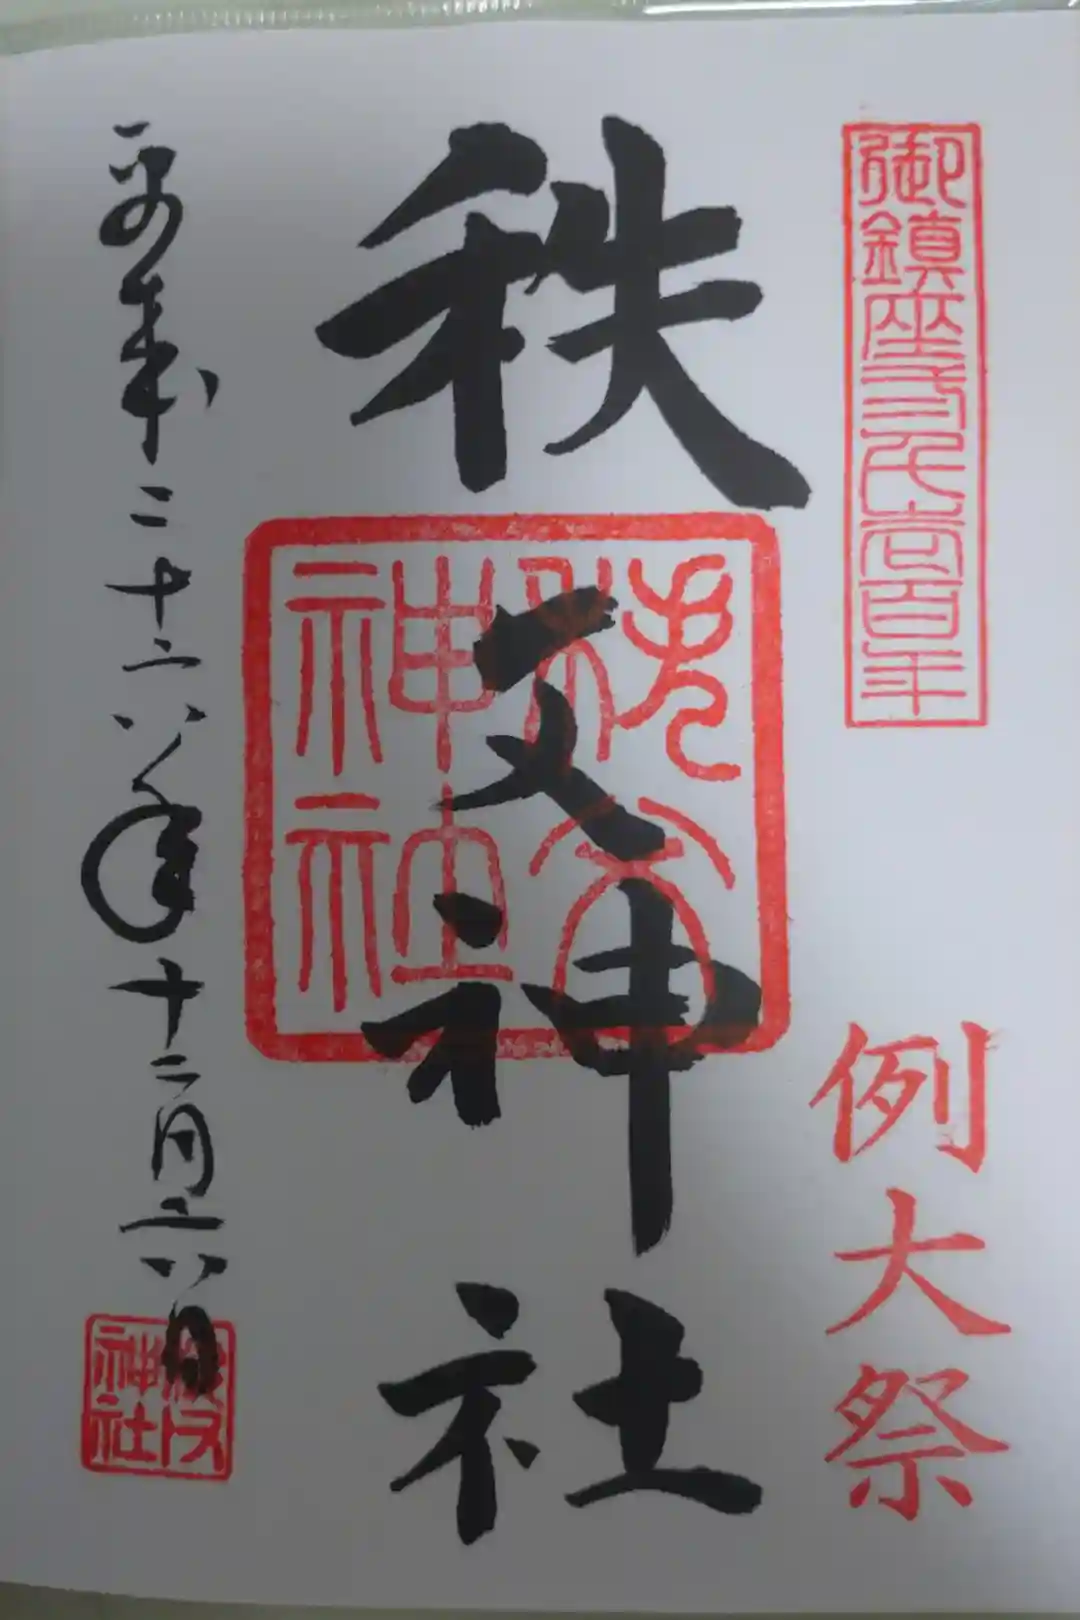 御鎮座弐千壱百年
例大祭
秩父神社
秩父神社
平成二十六年十二月六日
秩父神社